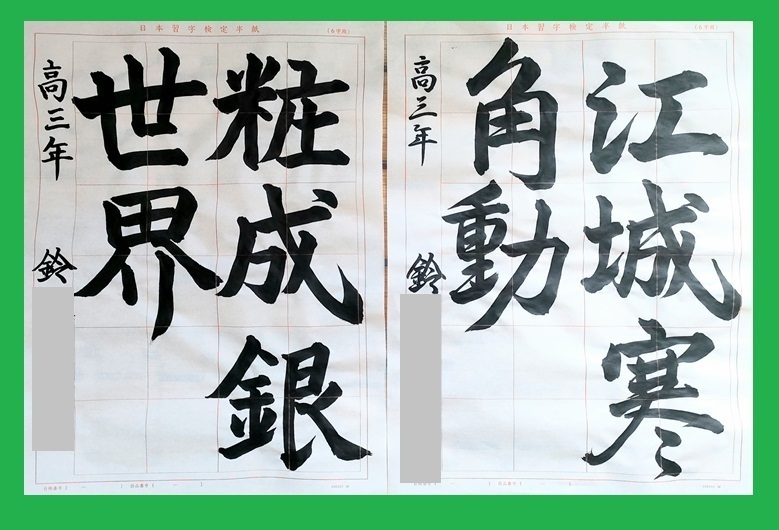 日本習字検定半紙
(6字用)
江城寒
角動
高三年 鈴
日本習字検定半紙
(6字用)
粧成銀
世界
高三年 鈴